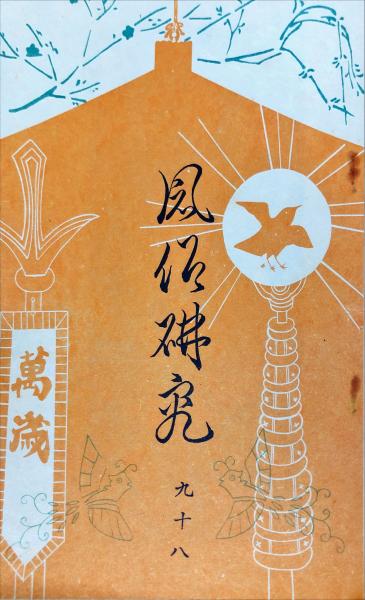 風俗研究
九十八
萬歳